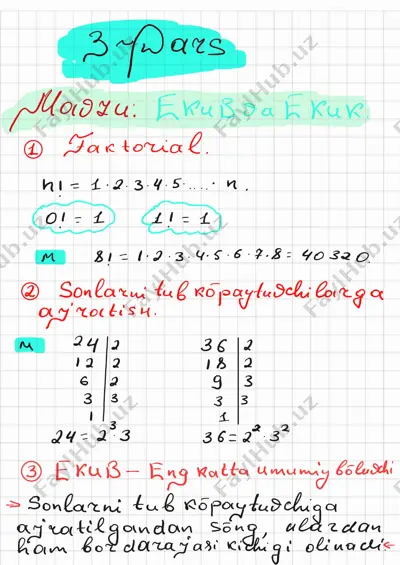 3-Dars
Mavzu: EKUB va EKUK
① Faktorial.
n! = 1·2·3·4·5·....·n.
0! = 1 1! = 1
M 8! = 1·2·3·4·5·6·7·8 = 40320.
② Sonlarni tub ko̅paytuvchilarga
ajratish.
M 24|2 36|2
12|2 18|2
6|2 9|3
3|3 3|3
1| 1|
24 = 2³·3 36 = 2²·3²
③ EKUB – Eng katta umumiy bo̅luvchi
Sonlarni tub ko̅paytuvchiga
ajratilgandan so̅ng, ulardan
ham bor darajasi kichigi olinadi
FaylHub.uz